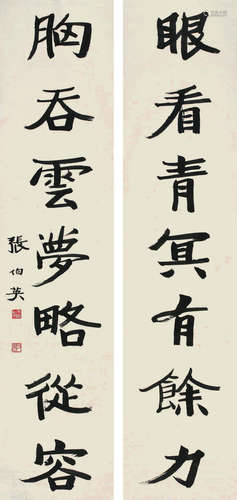 眼看青冥有餘力
胸吞雲夢略從容
張伯英